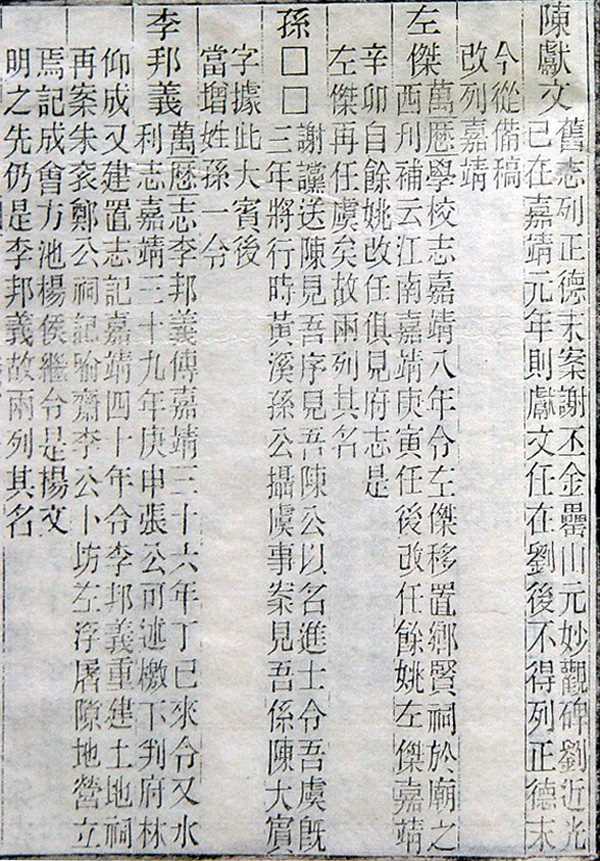 陳獻文
舊志列正德末案謝丕金罍山元妙觀碑劉近光
已在嘉靖元年則獻文任在劉後不得列正德末
今從備稿
改列嘉靖
左傑
萬厯學校志嘉靖八年令左傑移置鄉賢祠於廟之
西刋補云江南嘉靖庚寅任後改任餘姚左傑嘉靖
辛卯自餘姚改任俱見府志是
左傑再任虞矣故兩列其名
孫□□
謝讜送陳見吾序見吾陳公以名進士令吾虞旣
三年將行時黃溪孫公攝虞事案見吾係陳大賓
字據此大賓後
當增姓孫一令
李邦義
萬厯志李邦義傳嘉靖三十六年丁巳來令又水
利志嘉靖三十九年庚申張公可述檄下判府林
仰成又建置志記嘉靖四十年令李邦義重建土地祠
再案朱衮鄭公祠記喻齋李公卜坊左浮屠隙地營立
焉記成會方池楊侯繼令是楊文
明之先仍是李邦義故兩列其名